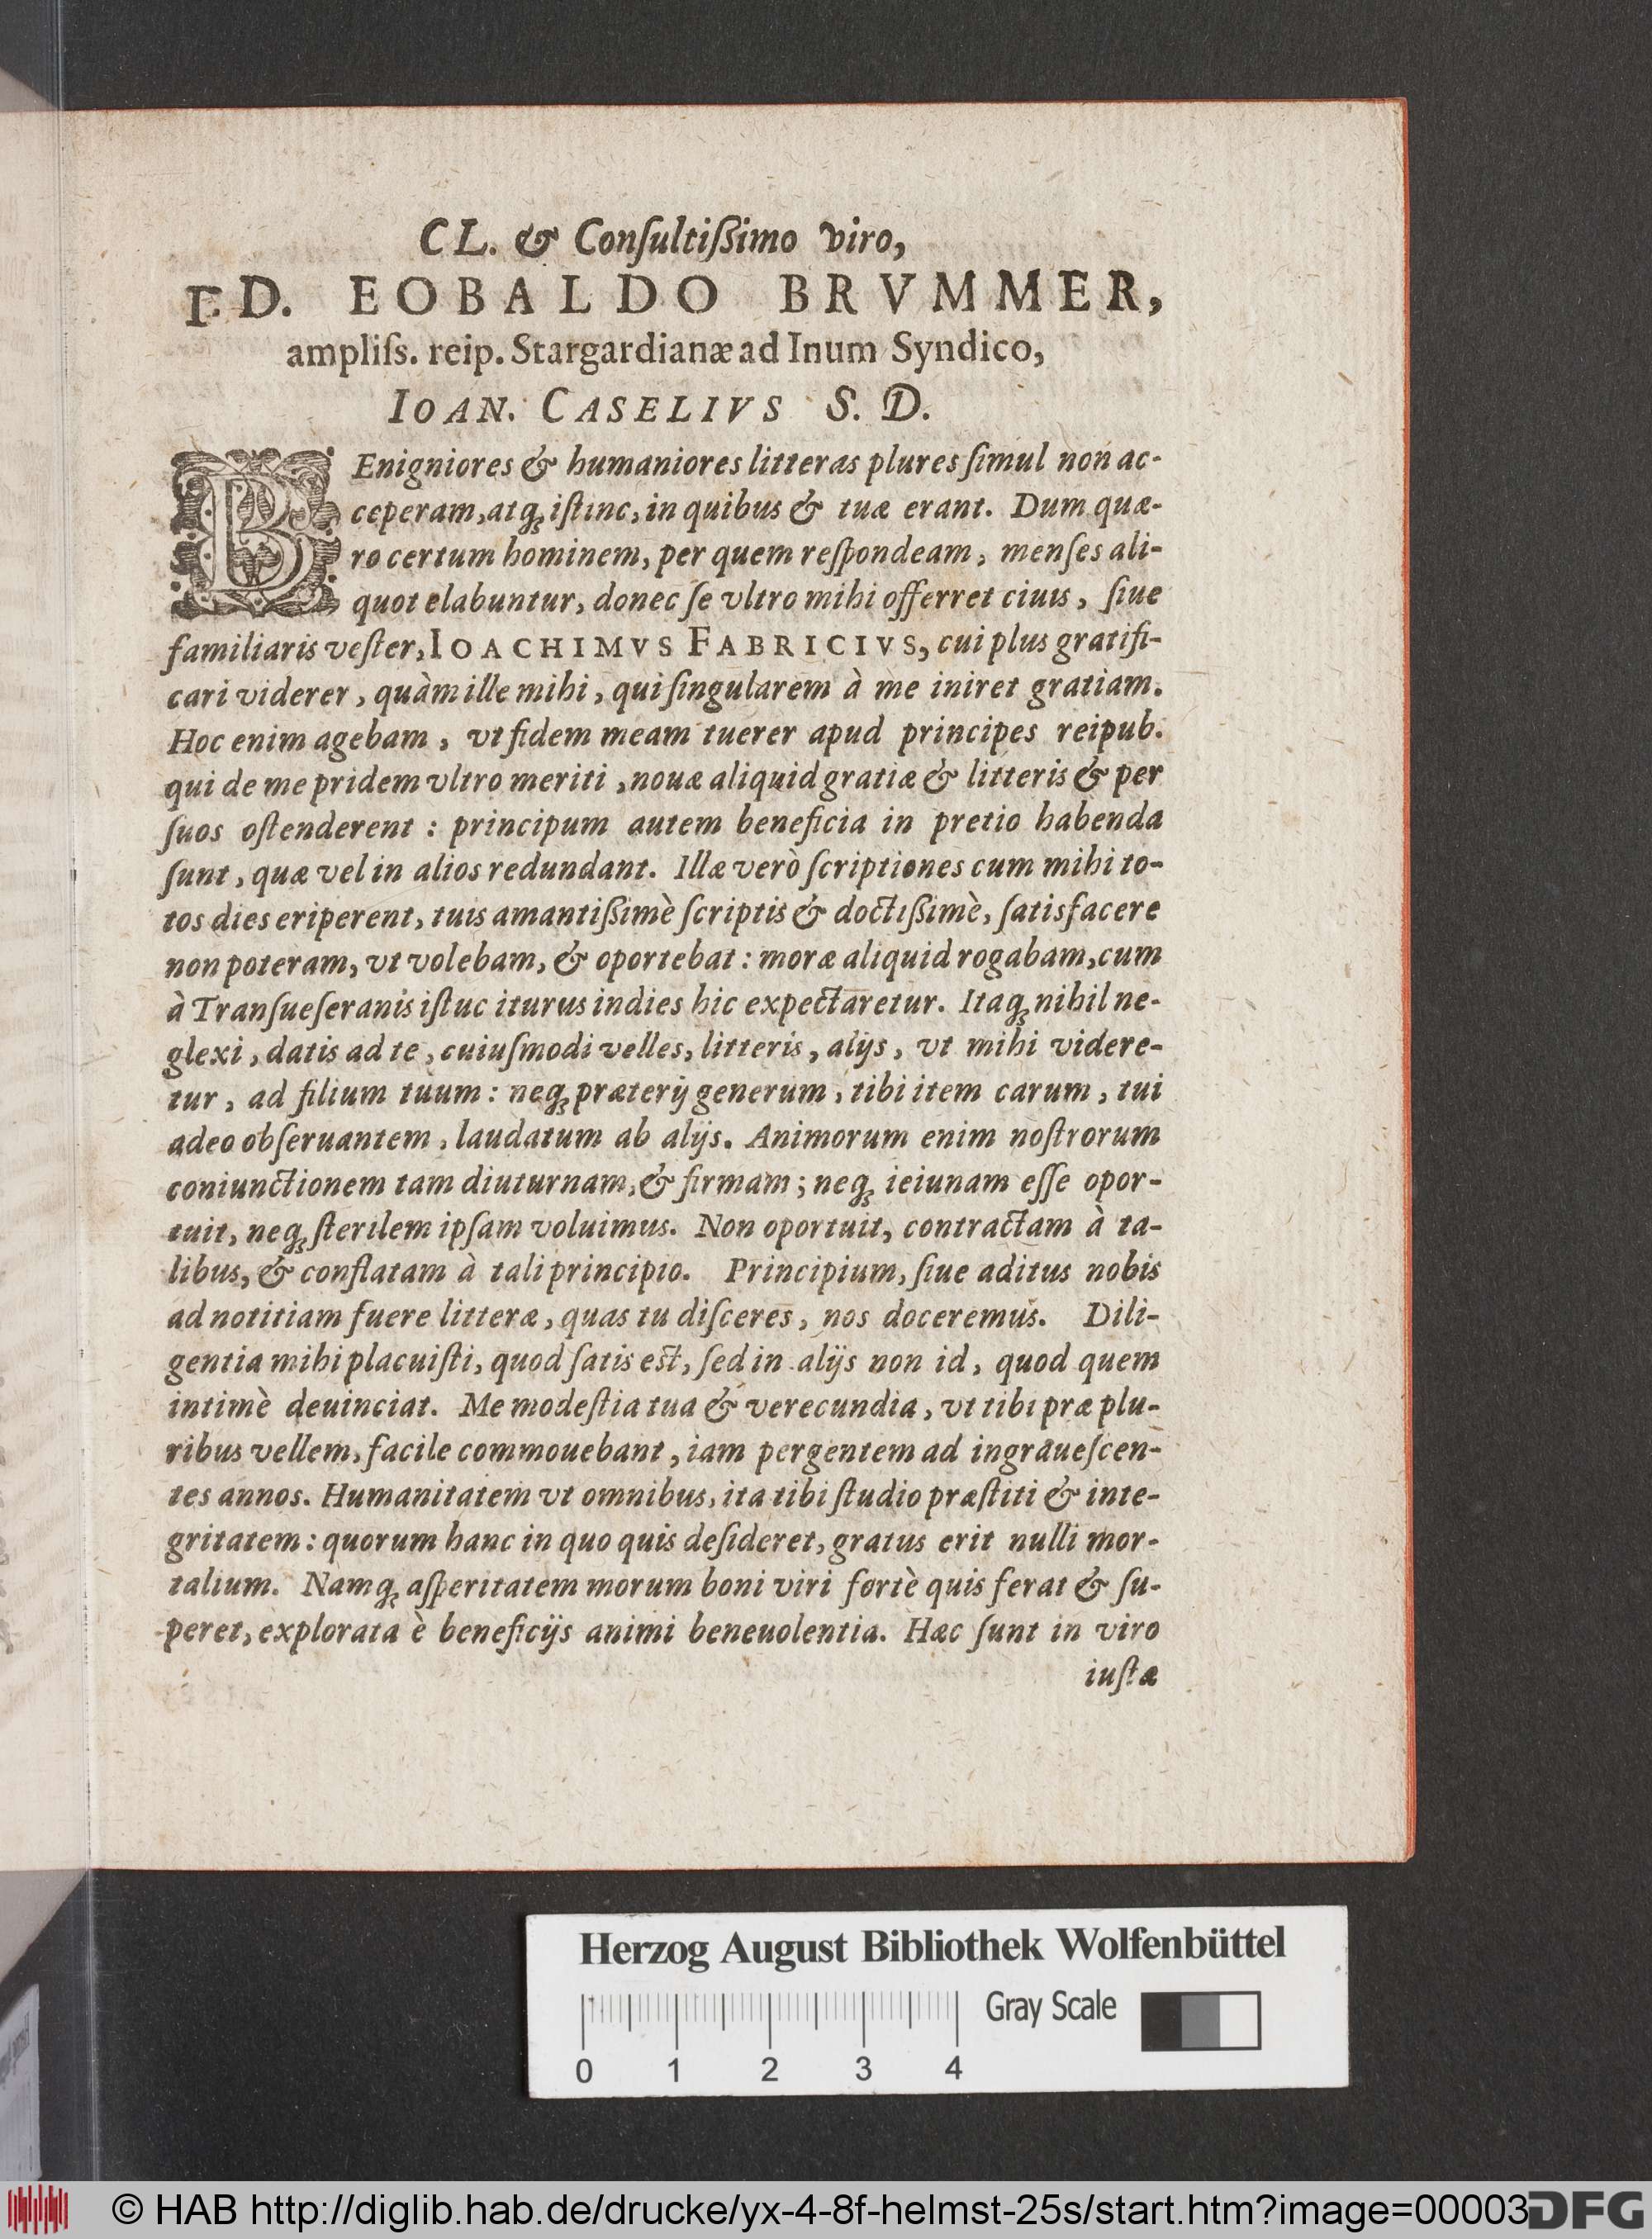 CL. & Conſultißimo viro,
I. D. EOBALDO BRVMMER,
ampliſs. reip. Stargardianæ ad Inum Syndico,
IOAN. CASELIVS S. D.
BEnigniores & humaniores litteras plures ſimul non ac-
ceperam, atqꝫ iſtinc, in quibus & tuæ erant. Dum quæ-
ro certum hominem, per quem reſpondeam, menſes ali-
quot elabuntur, donec ſe vltro mihi offerret ciuis, ſiue
familiaris veſter, IOACHIMVS FABRICIVS, cui plus gratifi-
cari viderer, quàm ille mihi, qui ſingularem à me iniret gratiam.
Hoc enim agebam, vt fidem meam tuerer apud principes reipub.
qui de me pridem vltro meriti, nouæ aliquid gratiæ & litteris & per
ſuos oſtenderent : principum autem beneficia in pretio habenda
ſunt, quæ vel in alios redundant. Illæ verò ſcriptiones cum mihi to-
tos dies eriperent, tuis amantißimè ſcriptis & doctißimè, ſatisfacere
non poteram, vt volebam, & oportebat : moræ aliquid rogabam, cum
à Tranſueſeranis iſtuc iturus indies hic expectaretur. Itaqꝫ nihil ne-
glexi, datis ad te, cuiuſmodi velles, litteris, alijs, vt mihi videre-
tur, ad filium tuum : neqꝫ præterij generum, tibi item carum, tui
adeo obſeruantem, laudatum ab alijs. Animorum enim noſtrorum
coniunctionem tam diuturnam, & firmam ; neqꝫ ieiunam eſſe opor-
tuit, neqꝫ ſterilem ipſam voluimus. Non oportuit, contractam à ta-
libus, & conflatam à tali principio. Principium, ſiue aditus nobis
ad notitiam fuere litteræ, quas tu diſceres, nos doceremus. Dili-
gentia mihi placuiſti, quod ſatis eſt, ſed in alijs non id, quod quem
intimè deuinciat. Me modeſtia tua & verecundia, vt tibi præ plu-
ribus vellem, facile commouebant, iam pergentem ad ingraueſcen-
tes annos. Humanitatem vt omnibus, ita tibi ſtudio præſtiti & inte-
gritatem : quorum hanc in quo quis deſideret, gratus erit nulli mor-
talium. Namqꝫ aſperitatem morum boni viri fortè quis ferat & ſu-
peret, explorata è beneficijs animi beneuolentia. Hæc ſunt in viro
iuſtæ
Herzog August Bibliothek Wolfenbüttel
Gray Scale
0 1 2 3 4
© HAB http://diglib.hab.de/drucke/yx-4-8f-helmst-25s/start.htm?image=00003
DFG